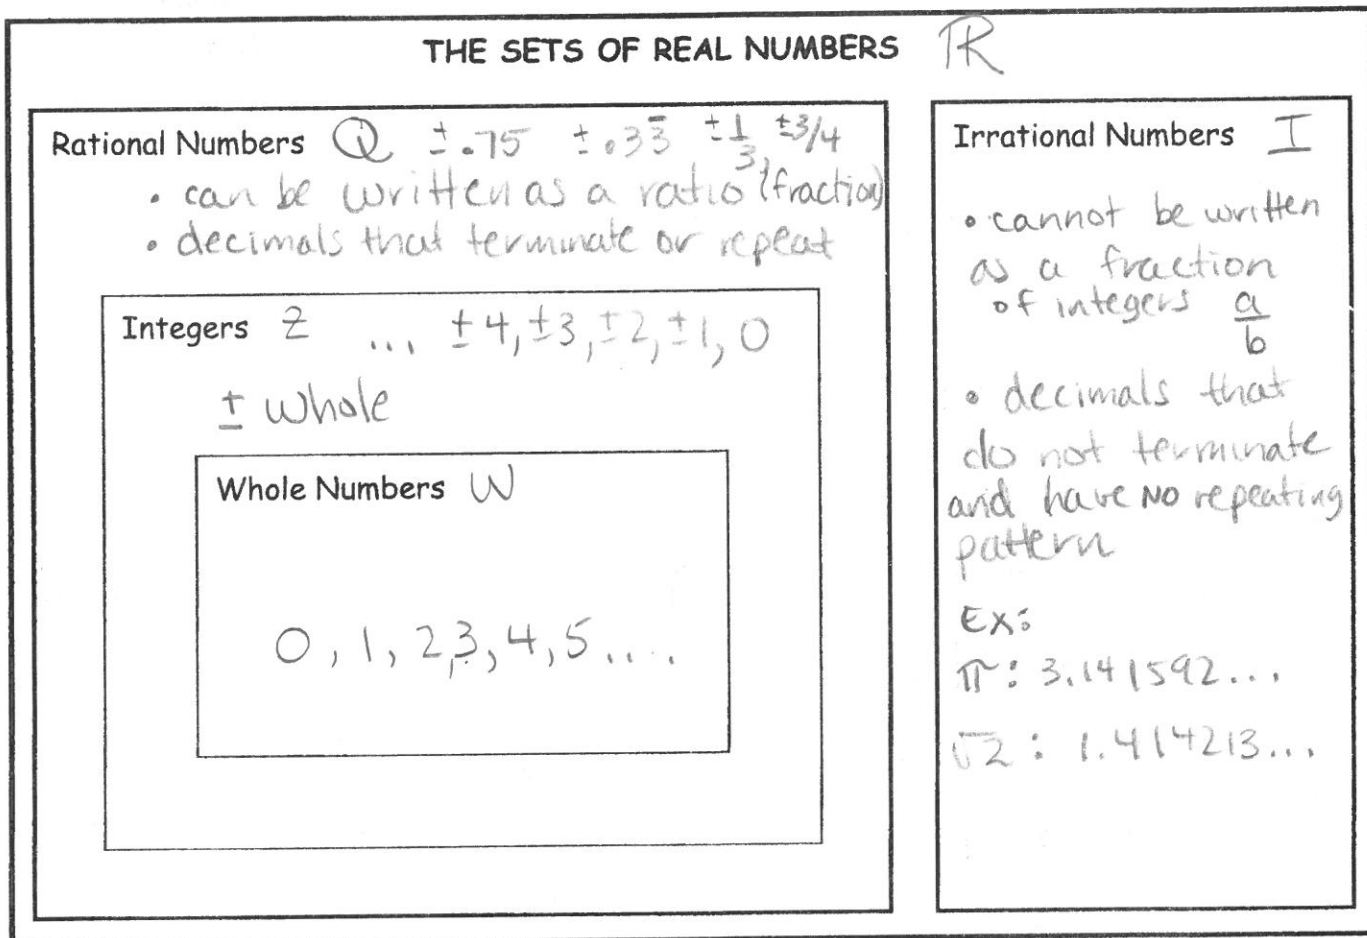 THE SETS OF REAL NUMBERS ℝ
Rational Numbers Q ±.75 ±.33̅ ±1/3, ±3/4
• can be written as a ratio (fraction)
• decimals that terminate or repeat
Integers Z ... ±4, ±3, ±2, ±1, 0
± whole
Whole Numbers W
0, 1, 2, 3, 4, 5....
Irrational Numbers I
• cannot be written
as a fraction
of integers a/b
• decimals that
do not terminate
and have NO repeating
pattern
Ex:
π: 3.141592...
√2: 1.414213...